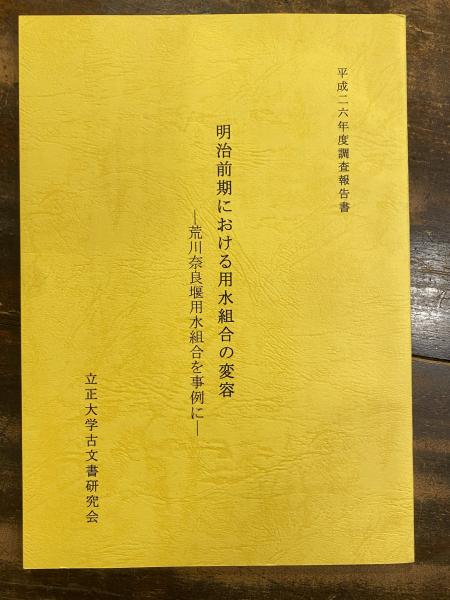 平成二六年度調査報告書
明治前期における用水組合の変容
―荒川奈良堰用水組合を事例に―
立正大学古文書研究会